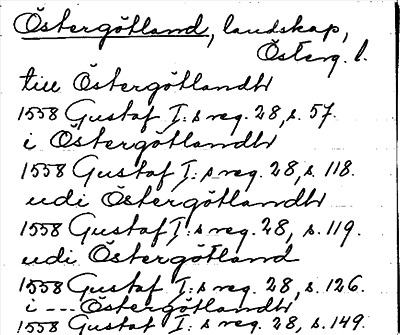 Östergötland, landskap,
Österg. l.
till Östergötlandh
1558 Gustaf I:s reg. 28, s. 57.
i Östergötlandh
1558 Gustaf I:s reg. 28, s. 118.
udi Östergötlandh
1558 Gustaf I:s reg. 28, s. 119.
udi Östergötland
1558 Gustaf I:s reg. 28, s. 126.
i --- Östergötlandh
1558 Gustaf I:s reg. 28, s. 149.